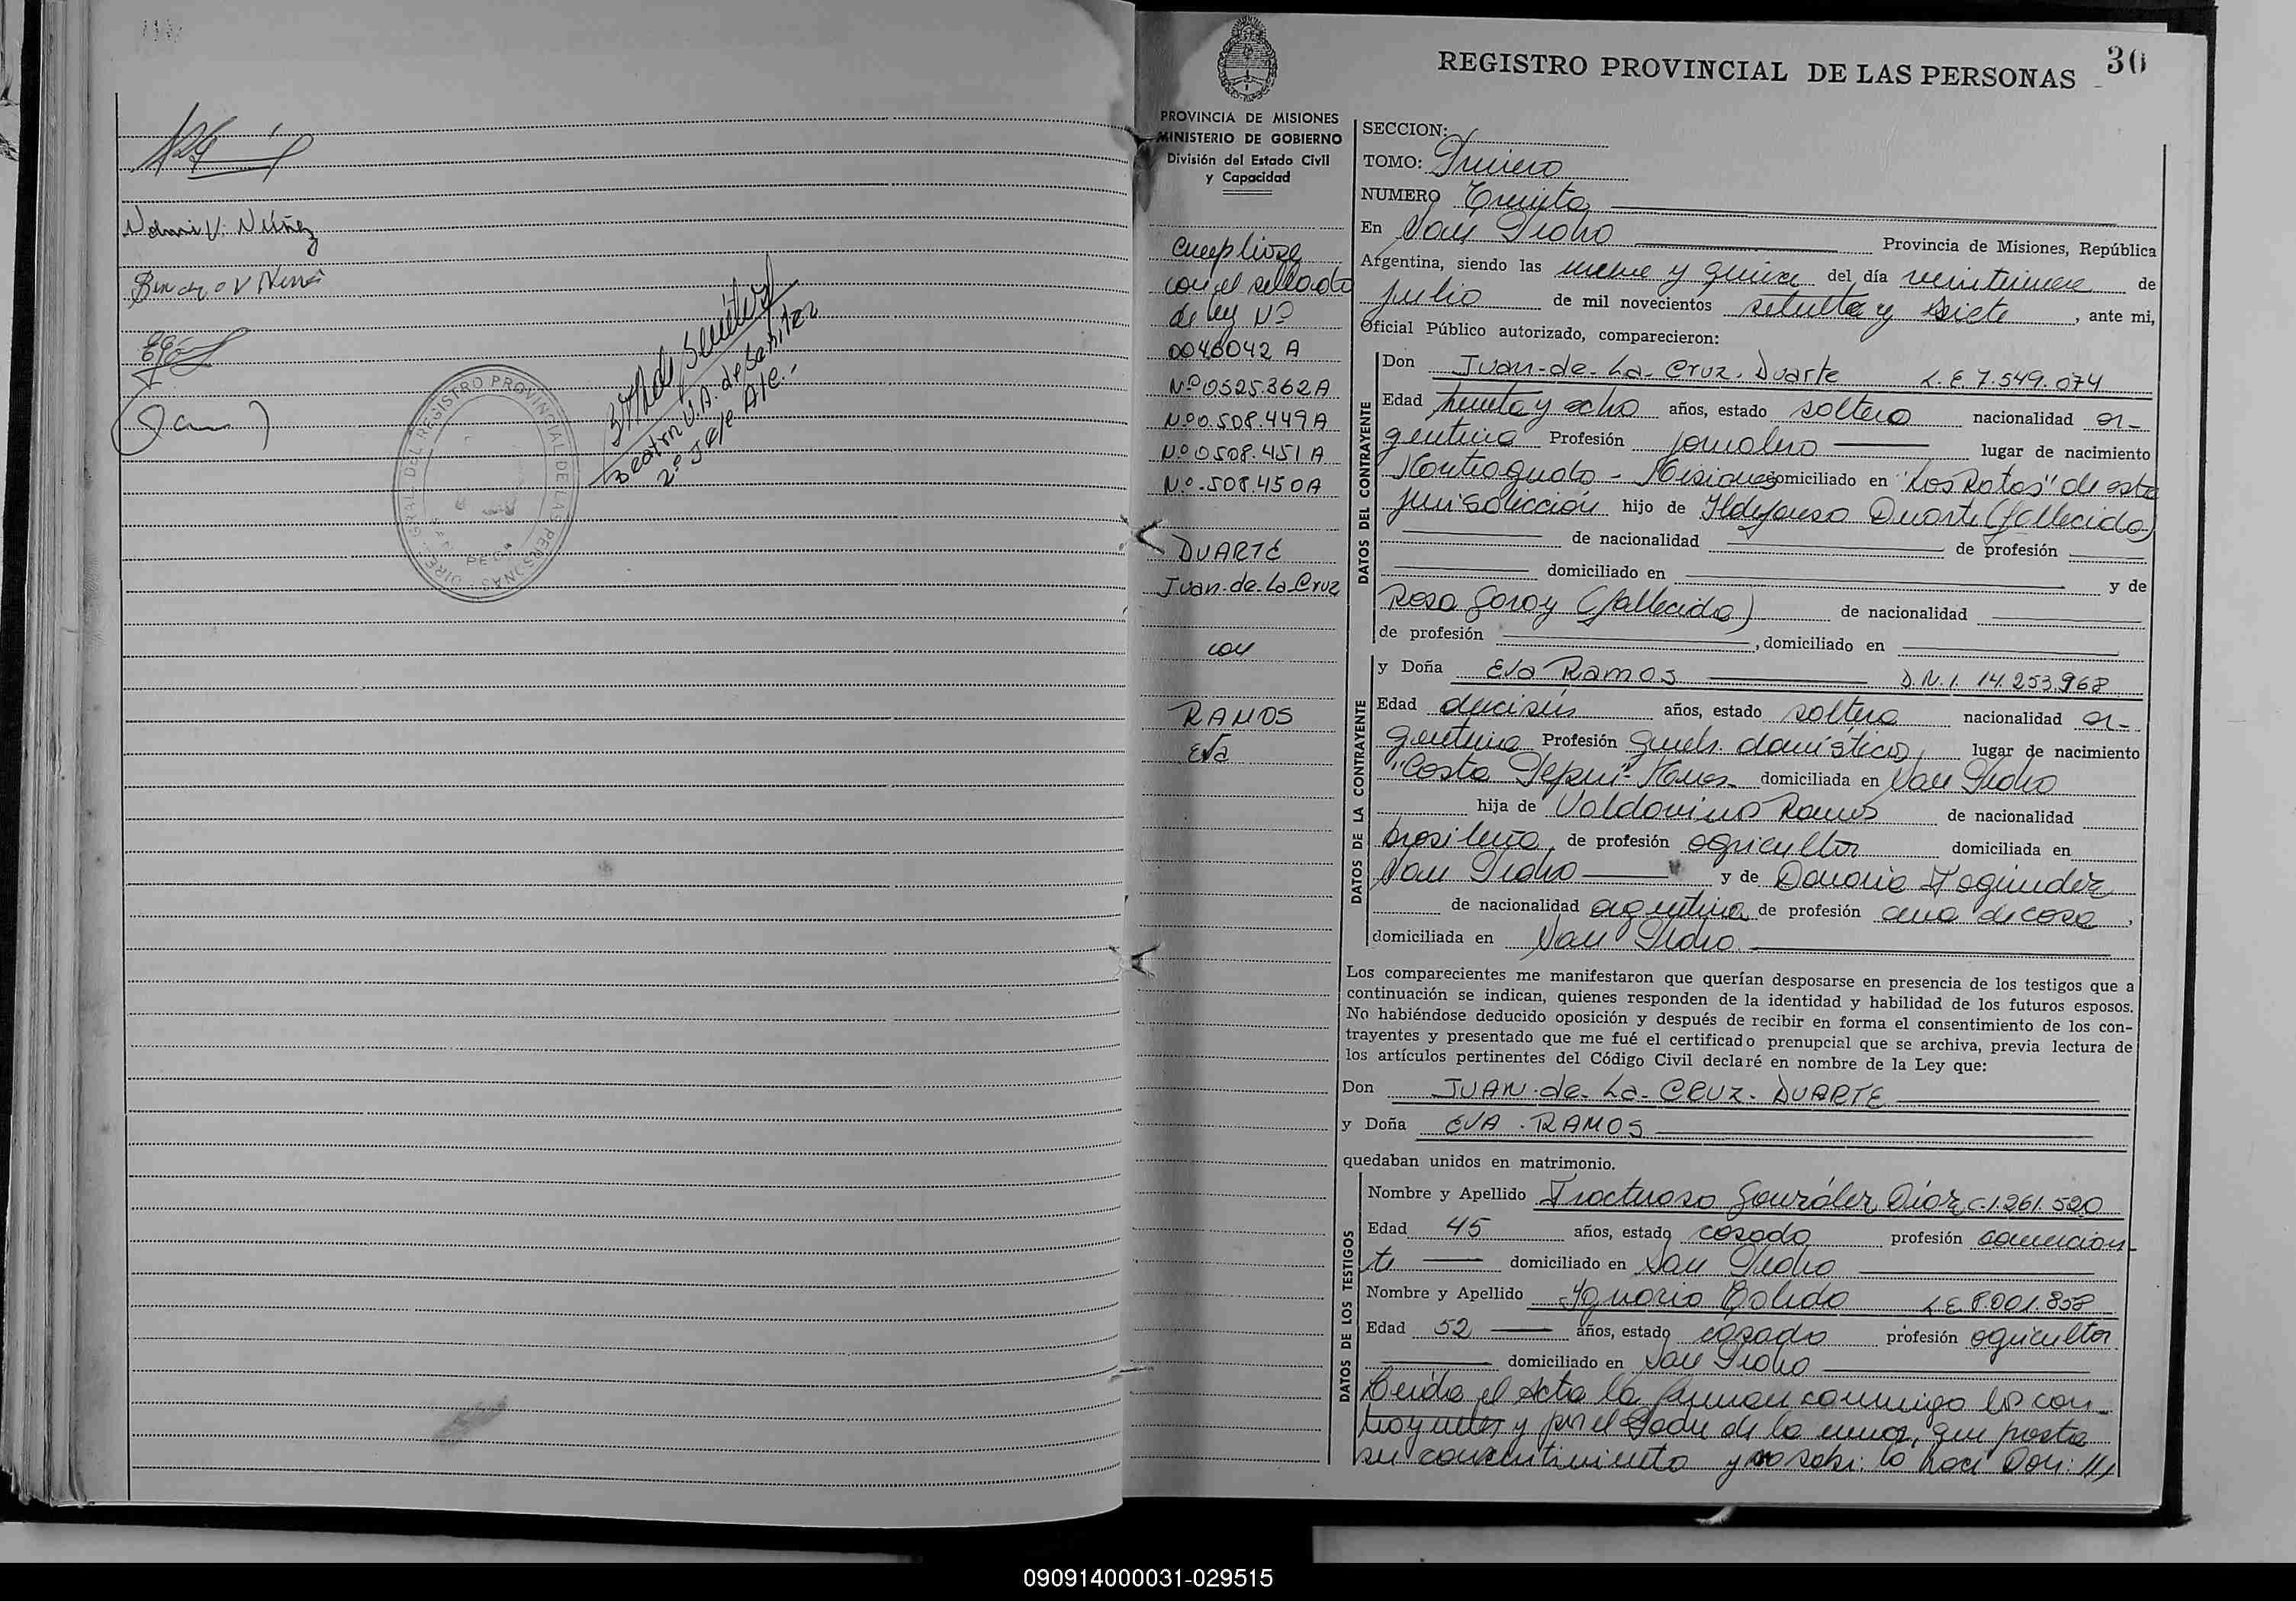 Nami V. Núñez
Beatriz V.A. de Benitez
2º Jefe Ate.-
DIREC. GRAL. DEL REGISTRO PROVINCIAL DE LAS PERSONAS
REGISTRO PROVINCIAL DE LAS PERSONAS
30
PROVINCIA DE MISIONES
MINISTERIO DE GOBIERNO
División del Estado Civil
y Capacidad
Cumpliose
con el sellado
de ley Nº
0046042 A
Nº 0525.362A
Nº 0.508.449A
Nº 0508.451 A
Nº .508.450A
DUARTE
Juan-de-La-Cruz
con
RAMOS
Eva
SECCION:
TOMO: Primero
NUMERO Treinta
En San Pedro Provincia de Misiones, República
Argentina, siendo las nueve y quince del día veintinueve de
julio de mil novecientos setenta y siete, ante mi,
Oficial Público autorizado, comparecieron:
DATOS DEL CONTRAYENTE
Don Juan-de-La-Cruz. Duarte L.E. 7.549.074
Edad treinta y ocho años, estado soltero nacionalidad ar-
gentina Profesión jornalero lugar de nacimiento
Monteagudo - Misiones domiciliado en "Los Ratos" de esta
jurisdicción hijo de Ildefonso Duarte (fallecido)
de nacionalidad de profesión
domiciliado en y de
Rosa Garay (fallecida) de nacionalidad
de profesión , domiciliado en
DATOS DE LA CONTRAYENTE
y Doña Eva Ramos D.N.I. 14.253.968
Edad dieciséis años, estado soltera nacionalidad ar-
gentina Profesión domésticos lugar de nacimiento
"Costa domiciliada en San Pedro
hija de Valdovino Ramos de nacionalidad
brasileña de profesión agricultor domiciliada en
San Pedro y de Fagundez
de nacionalidad argentina de profesión ama de casa,
domiciliada en San Pedro
Los comparecientes me manifestaron que querían desposarse en presencia de los testigos que a
continuación se indican, quienes responden de la identidad y habilidad de los futuros esposos.
No habiéndose deducido oposición y después de recibir en forma el consentimiento de los con-
trayentes y presentado que me fué el certificado prenupcial que se archiva, previa lectura de
los artículos pertinentes del Código Civil declaré en nombre de la Ley que:
Don JUAN-de-La-CRUZ-DUARTE
y Doña EVA . RAMOS
quedaban unidos en matrimonio.
DATOS DE LOS TESTIGOS
Nombre y Apellido Fructuoso González Díaz C.I.261.520
Edad 45 años, estado casado profesión comercian-
te domiciliado en San Pedro
Nombre y Apellido Ignacio L.E. 8.001.858
Edad 52 años, estado casado profesión agricultor
domiciliado en San Pedro
Leída el Acta la firman conmigo los con-
trayentes y por el Padre de la menor, que presta
su consentimiento y no sabe: lo hace Don: ///
090914000031-029515